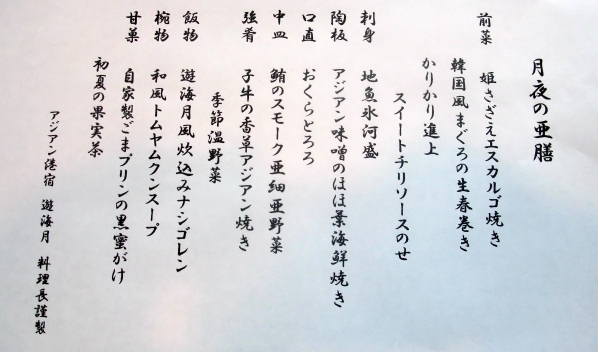 月夜の亜膳
前菜 姫さざえエスカルゴ焼き
韓国風まぐろの生春巻き
かりかり進上
スイートチリソースのせ
刺身 地魚氷河盛
陶板 アジアン味噌のほほ葉海鮮焼き
口直 おくらとろろ
中皿 鮪のスモーク亜細亜野菜
強肴 子牛の香草アジアン焼き
季節温野菜
飯物 遊海月風炊込みナシゴレン
椀物 和風トムヤムクンスープ
甘菓 自家製ごまプリンの黒蜜がけ
初夏の果実茶
アジアン港宿 遊海月 料理長謹製